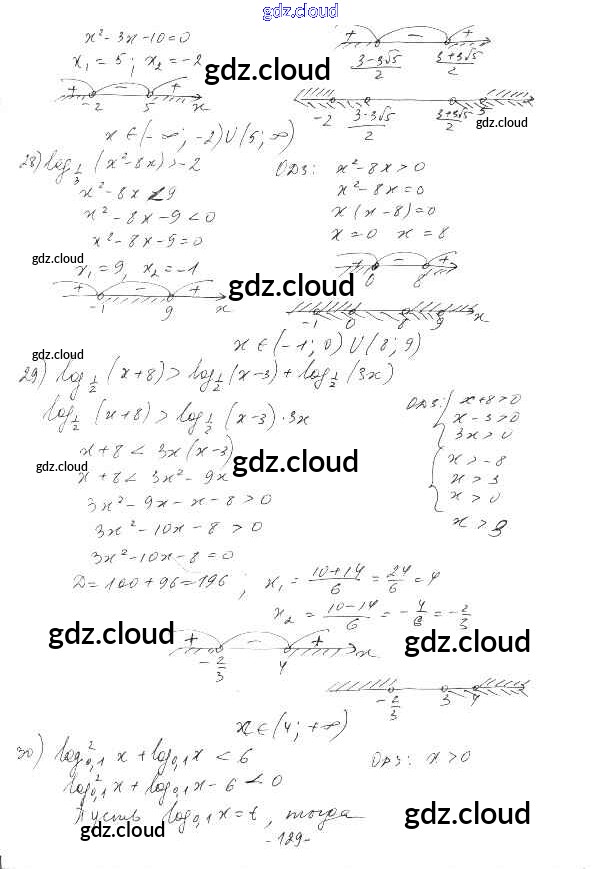 gdz.cloud
x² - 3x - 10 = 0
x₁ = 5; x₂ = -2
+ - +
-2 5 x
+ - +
(3-3√5)/2 (3+3√5)/2
gdz.cloud
-2 (3-3√5)/2 (3+3√5)/2 5
gdz.cloud
x ∈ (-∞; -2) ∪ (5; ∞)
28) log_{1/3} (x² - 8x) > -2
x² - 8x < 9
x² - 8x - 9 < 0
x² - 8x - 9 = 0
x₁ = 9, x₂ = -1
+ - +
-1 9 x
ОДЗ: x² - 8x > 0
x² - 8x = 0
x(x - 8) = 0
x = 0 x = 8
+ - +
0 8
gdz.cloud
gdz.cloud
-1 0 8 9 x
x ∈ (-1; 0) ∪ (8; 9)
gdz.cloud
29) log_{1/2} (x+8) > log_{1/2} (x-3) + log_{1/2} (3x)
log_{1/2} (x+8) > log_{1/2} (x-3)·3x
x+8 < 3x(x-3)
x+8 < 3x² - 9x
3x² - 9x - x - 8 > 0
3x² - 10x - 8 > 0
3x² - 10x - 8 = 0
ОДЗ: { x+8>0
x-3>0
3x>0
{ x>-8
x>3
x>0
x>3
gdz.cloud
gdz.cloud
gdz.cloud
D = 100+96=196; x₁ = (10+14)/6 = 24/6 = 4
x₂ = (10-14)/6 = -4/6 = -2/3
gdz.cloud
gdz.cloud
+ - +
-2/3 4 x
-2/3 3 4
x ∈ (4; +∞)
30) log²_{0,1} x + log_{0,1} x < 6
ОДЗ: x > 0
log²_{0,1} x + log_{0,1} x - 6 < 0
Пусть log_{0,1} x = t, тогда
gdz.cloud
gdz.cloud
gdz.cloud
- 129 -